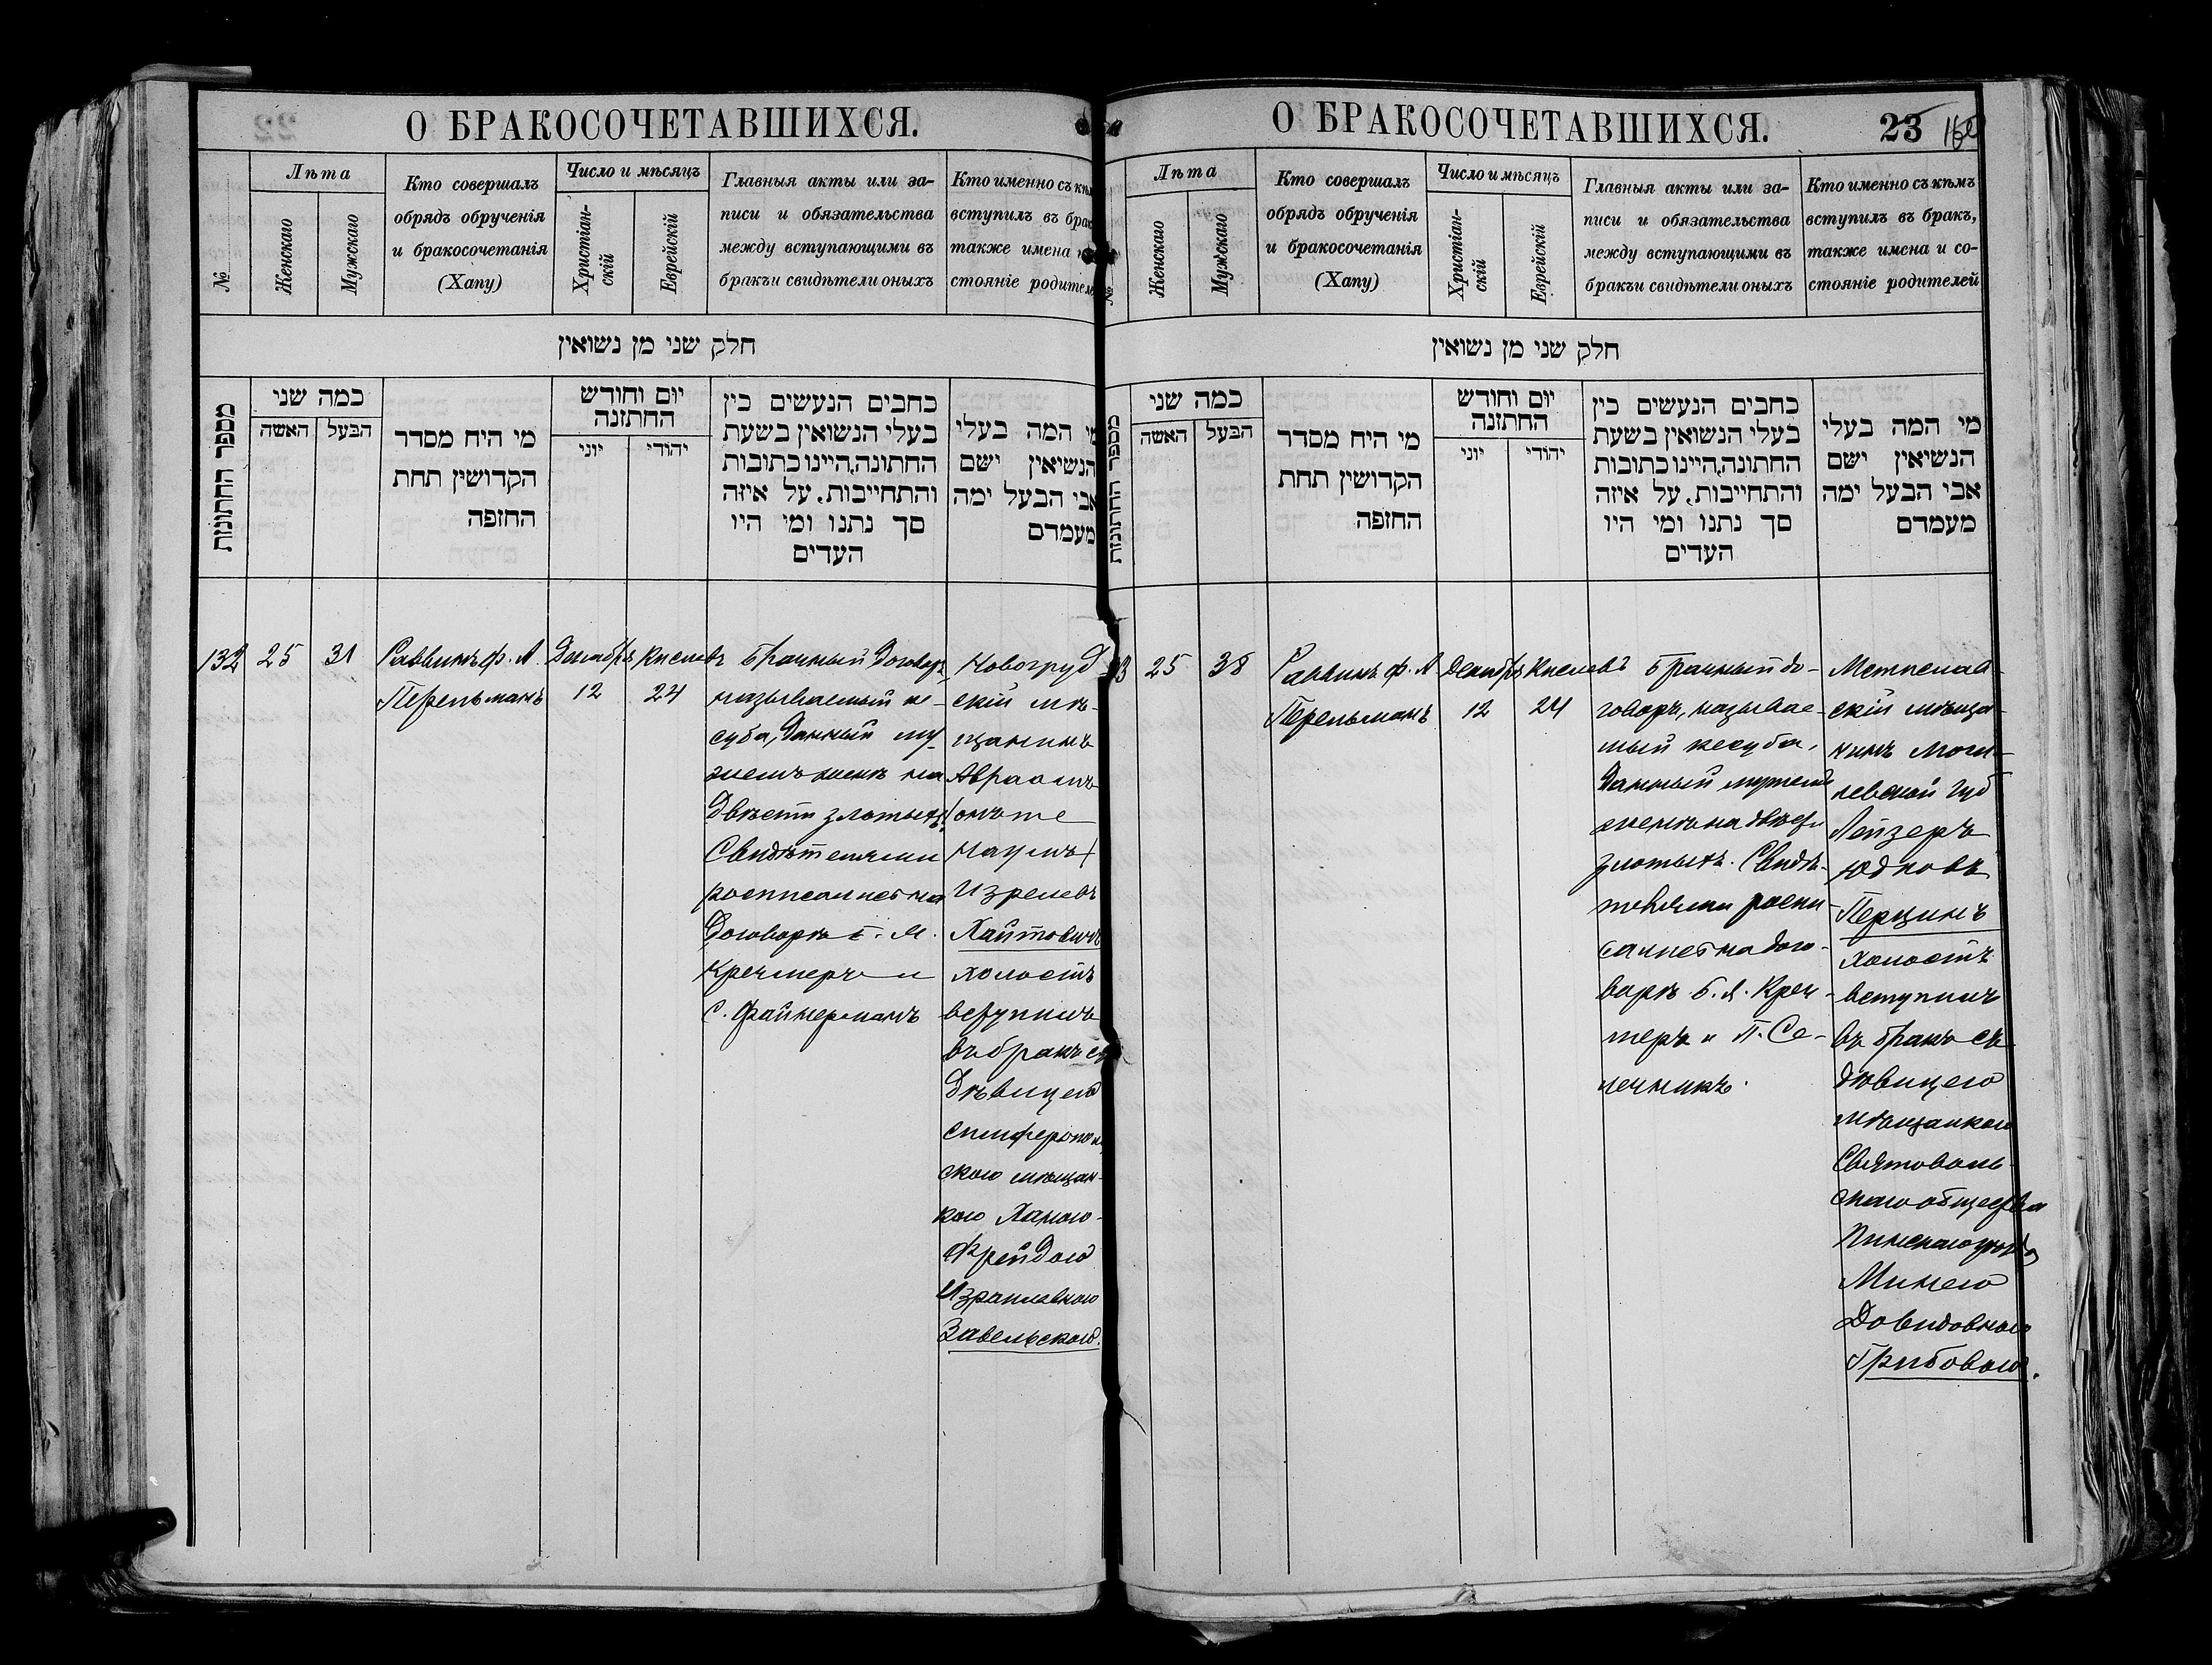 О БРАКОСОЧЕТАВШИХСЯ.
№
Лѣта
Женскаго
Мужскаго
Кто совершалъ
обрядъ обрученія
и бракосочетанія
(Хапу)
Число и мѣсяцъ
Христіан-
скій
Еврейскій
Главныя акты или за-
писи и обязательства
между вступающими въ
бракъ и свидѣтели оныхъ
Кто именно съ кѣм
вступилъ въ брак
также имена и
стояніе родителе
חלק שני מן נשואין
מספר החתונות
כמה שני
האשה
הבעל
מי היח מסדר
הקדושין תחת
החופה
יום וחודש
החתונה
יוני
יהודי
כחבים הנעשים בין
בעלי הנשואין בשעת
החתונה, היינו כתובות
והתחייבות, על איזה
סך נתנו ומי היו
העדים
מי המה בעלי
הנשיאין ישם
אבי הבעל ימה
מעמדם
132
25
31
Раввинъ ф. А.
Перельманъ
Декабрь
12
Кислевъ
24
Брачный договоръ,
называемый ке-
суба, данный му-
жемъ женѣ на
двѣсти злотыхъ.
Свидѣтелями
росписались на
договорѣ М.
Кремеръ и
С. Файнерманъ
Новогруд
скій мѣ-
щанинъ
Авраамъ
(онъ же
Наумъ)
Израелевъ
Хаймовичъ
холостъ
вступилъ
въ бракъ съ
дѣвицею
симферополь
скою мѣщан-
кою Ханою-
Фрейдою
Израилевною
Завельскою.
О БРАКОСОЧЕТАВШИХСЯ.
23
160
№
Лѣта
Женскаго
Мужскаго
Кто совершалъ
обрядъ обрученія
и бракосочетанія
(Хапу)
Число и мѣсяцъ
Христіан-
скій
Еврейскій
Главныя акты или за-
писи и обязательства
между вступающими въ
бракъ и свидѣтели оныхъ
Кто именно съ кѣмъ
вступилъ въ бракъ,
также имена и со-
стояніе родителей
חלק שני מן נשואין
מספר החתונות
כמה שני
האשה
הבעל
מי היח מסדר
הקדושין תחת
החופה
יום וחודש
החתונה
יוני
יהודי
כחבים הנעשים בין
בעלי הנשואין בשעת
החתונה, היינו כתובות
והתחייבות, על איזה
סך נתנו ומי היו
העדים
מי המה בעלי
הנשיאין ישם
אבי הבעל ימה
מעמדם
25
38
Раввинъ ф. А.
Перельманъ
Декабрь
12
Кислевъ
24
Брачный до-
говоръ, называе-
мый кесуба,
данный мужемъ
женѣ на двѣсти
злотыхъ. Свидѣ-
телями роспи-
сались на дого-
ворѣ Б. Я. Кре-
меръ и П. Се-
лечникъ.
Мстислав
скій мѣща-
нинъ Моги-
левской губ
Лейзеръ
Юдковъ
Перцинъ
холостъ
вступилъ
въ бракъ съ
дѣвицею
мѣщанкою
Святоволь-
скаго общества
Пинскаго уѣзда
Минею
Довидовною
Грибовою.